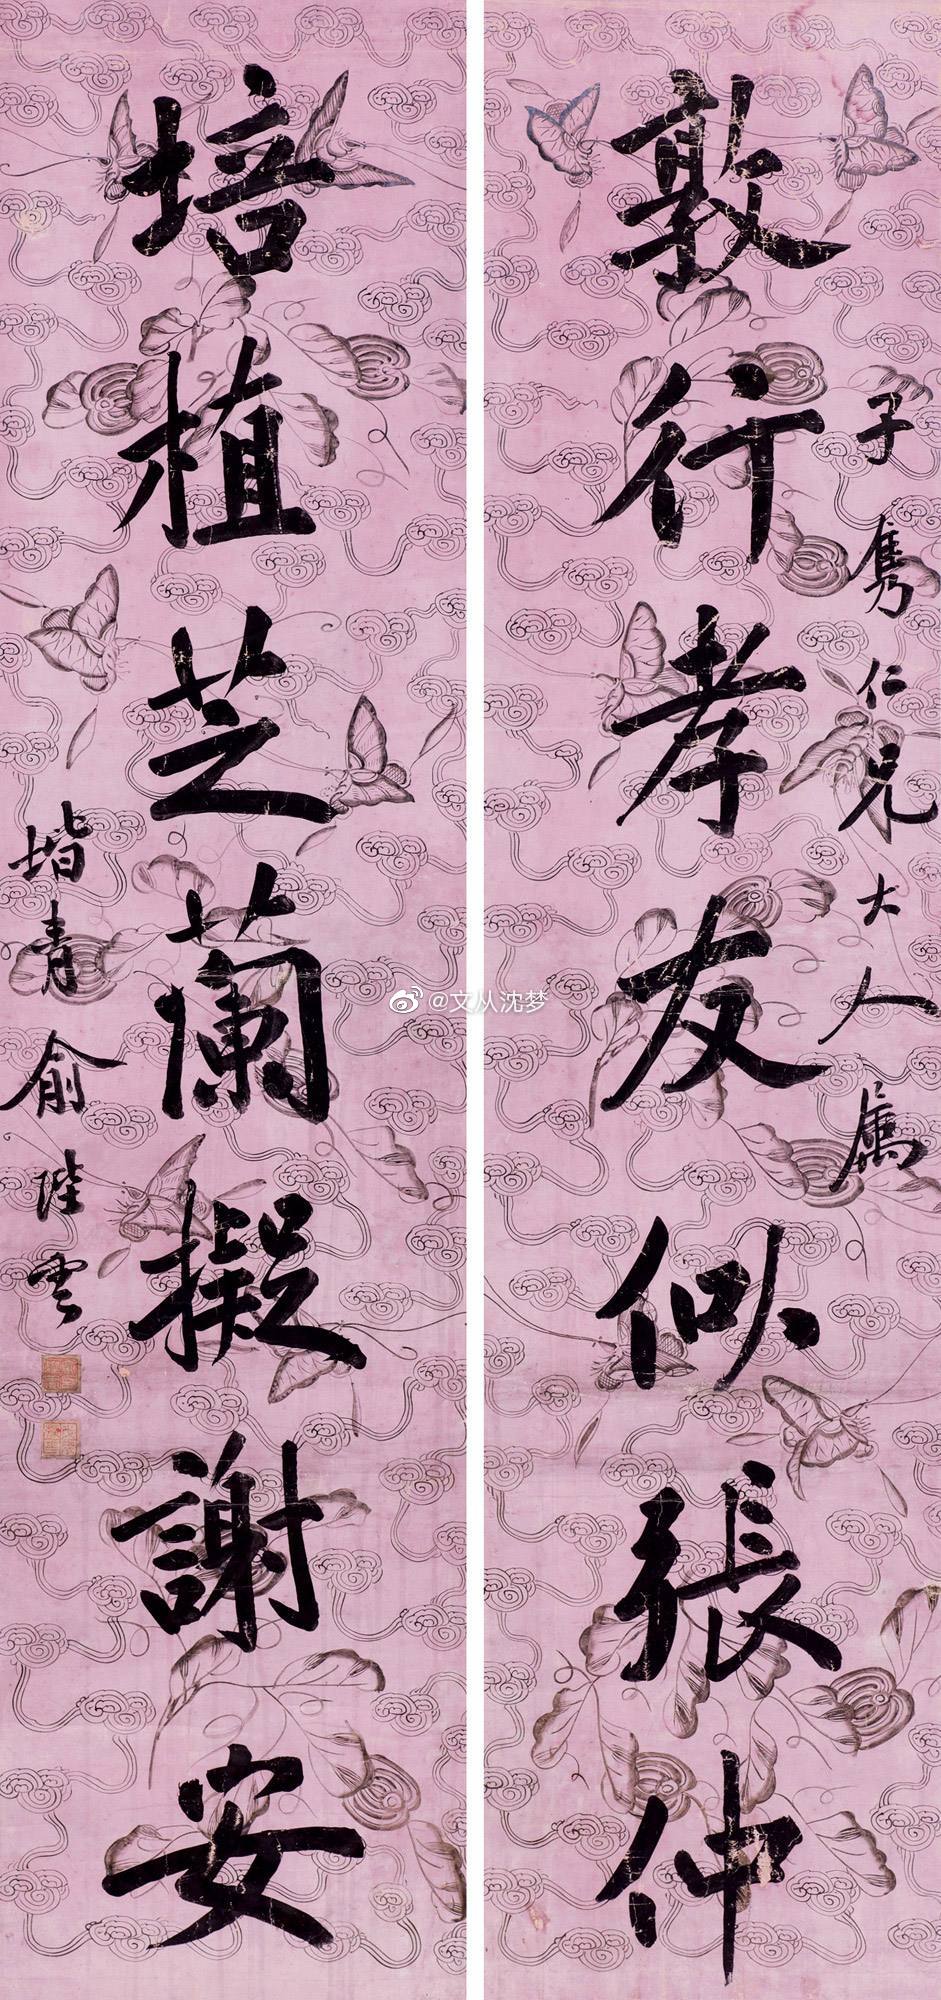 敦行孝友似張仲
子雋仁兄大人屬
培植芝蘭擬謝安
堦青俞陛雲
@文从沈梦